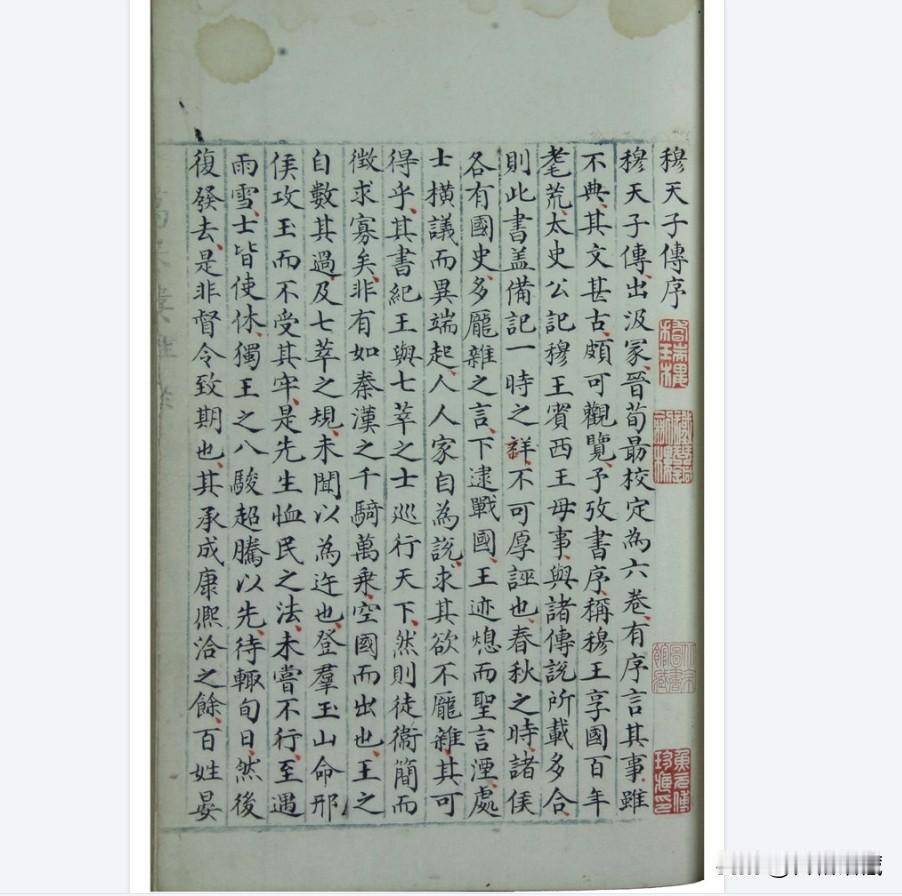 穆天子傳序
穆天子傳、出汲冢、晉荀勗校定為六卷、有序言其事、雖
不典、其文甚古、頗可觀覽、予攷書序、稱穆王享國百年
耄荒、太史公記穆王賓西王母事、與諸傳說所載多合、
則此書蓋備記一時之詳、不可厚誣也、春秋之時、諸侯
各有國史、多厖雜之言、下逮戰國、王迹熄而聖言湮、處
士橫議而異端起、人人家自為說、求其欲不厖雜、其可
得乎、其書紀王與七萃之士巡行天下、然則徒衛簡而
徵求寡矣、非有如秦漢之千騎萬乘、空國而出也、王之
自數其過、及七萃之規、未聞以為迕也、登羣玉山命邢
侯攻玉而不受其牢、是先生恤民之法、未嘗不行、至遇
雨雪、士皆使休、獨王之八駿超騰以先、待輒旬日、然後
復發去、是非督令致期也、其承成康熙洽之餘、百姓晏